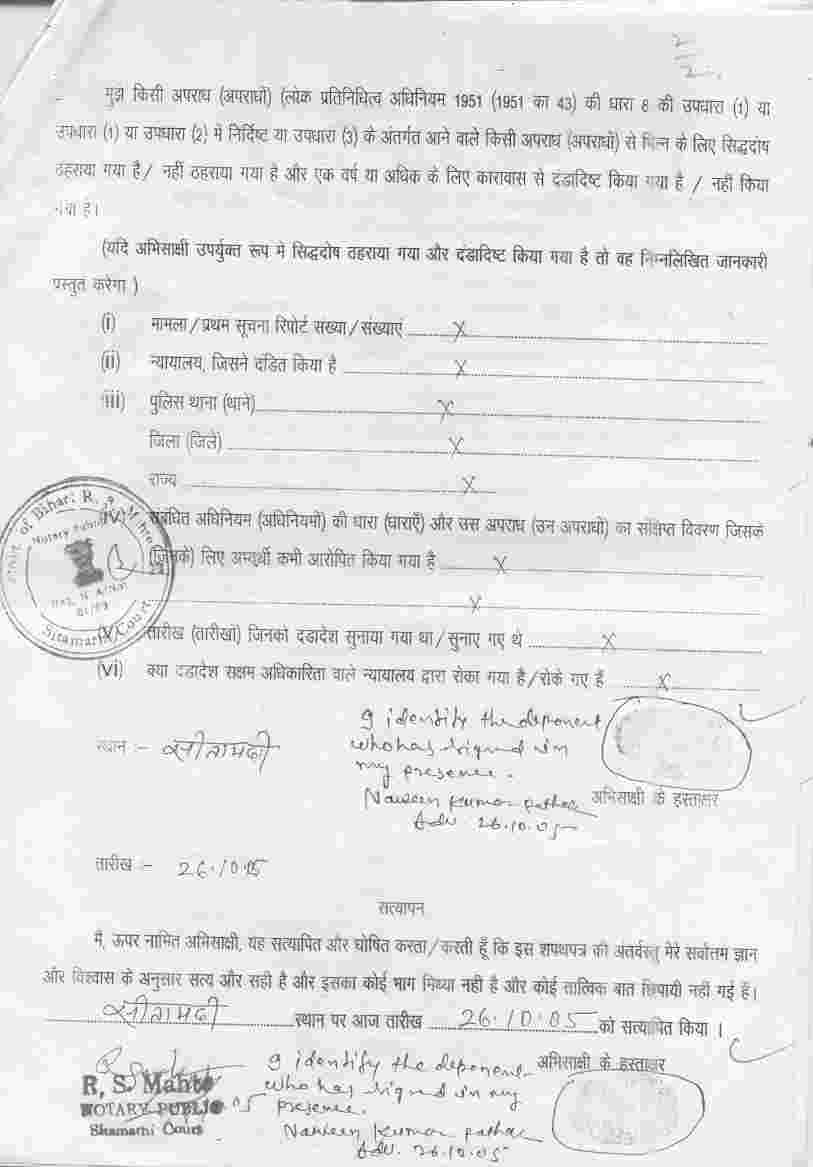 2
2.
मुझे किसी अपराध (अपराधों) (लोक प्रतिनिधित्व अधिनियम 1951 (1951 का 43) की धारा 8 की उपधारा (1) या
उपधारा (1) या उपधारा (2) में निर्दिष्ट या उपधारा (3) के अंतर्गत आने वाले किसी अपराध (अपराधों) से भिन्न के लिए सिद्धदोष
ठहराया गया है / नहीं ठहराया गया है और एक वर्ष या अधिक के लिए कारावास से दंडादिष्ट किया गया है / नहीं किया
गया है।
(यदि अभिसाक्षी उपर्युक्त रूप में सिद्धदोष ठहराया गया और दंडादिष्ट किया गया है तो वह निम्नलिखित जानकारी
प्रस्तुत करेगा )
(i) मामला / प्रथम सूचना रिपोर्ट संख्या / संख्याएं X
(ii) न्यायालय, जिसने दंडित किया है X
iii) पुलिस थाना (थाने) X
जिला (जिले) X
राज्य X
(iv) संबंधित अधिनियम (अधिनियमों) की धारा (धाराएँ) और उस अपराध (उन अपराधों) का संक्षिप्त विवरण जिसके
(जिनके) लिए अभ्यर्थी कभी आरोपित किया गया है X
X
(v) तारीख (तारीखों) जिनको दंडादेश सुनाया गया था / सुनाए गए थे X
(vi) क्या दंडादेश सक्षम अधिकारिता वाले न्यायालय द्वारा रोका गया है / रोके गए हैं X
of Bihar R. S. Mahto
Notary Public
Sitamarhi Court
I identify the deponent
who has signed in
my presence.
Naveen Kumar Pathak
Adv 26.10.05
स्थान :- सीतामढ़ी
अभिसाक्षी के हस्ताक्षर
तारीख :- 26.10.05
सत्यापन
मैं, ऊपर नामित अभिसाक्षी, यह सत्यापित और घोषित करता / करती हूँ कि इस शपथपत्र की अंतर्वस्तु मेरे सर्वोत्तम ज्ञान
और विश्वास के अनुसार सत्य और सही है और इसका कोई भाग मिथ्या नही है और कोई तात्विक बात छिपायी नहीं गई है।
सीतामढ़ी स्थान पर आज तारीख 26.10.05 को सत्यापित किया ।
अभिसाक्षी के हस्ताक्षर
R. S. Mahto
NOTARY PUBLIC
Sitamarhi Court
I identify the deponent
who has signed in my
presence.
Naveen Kumar Pathak
Adv. 26.10.05